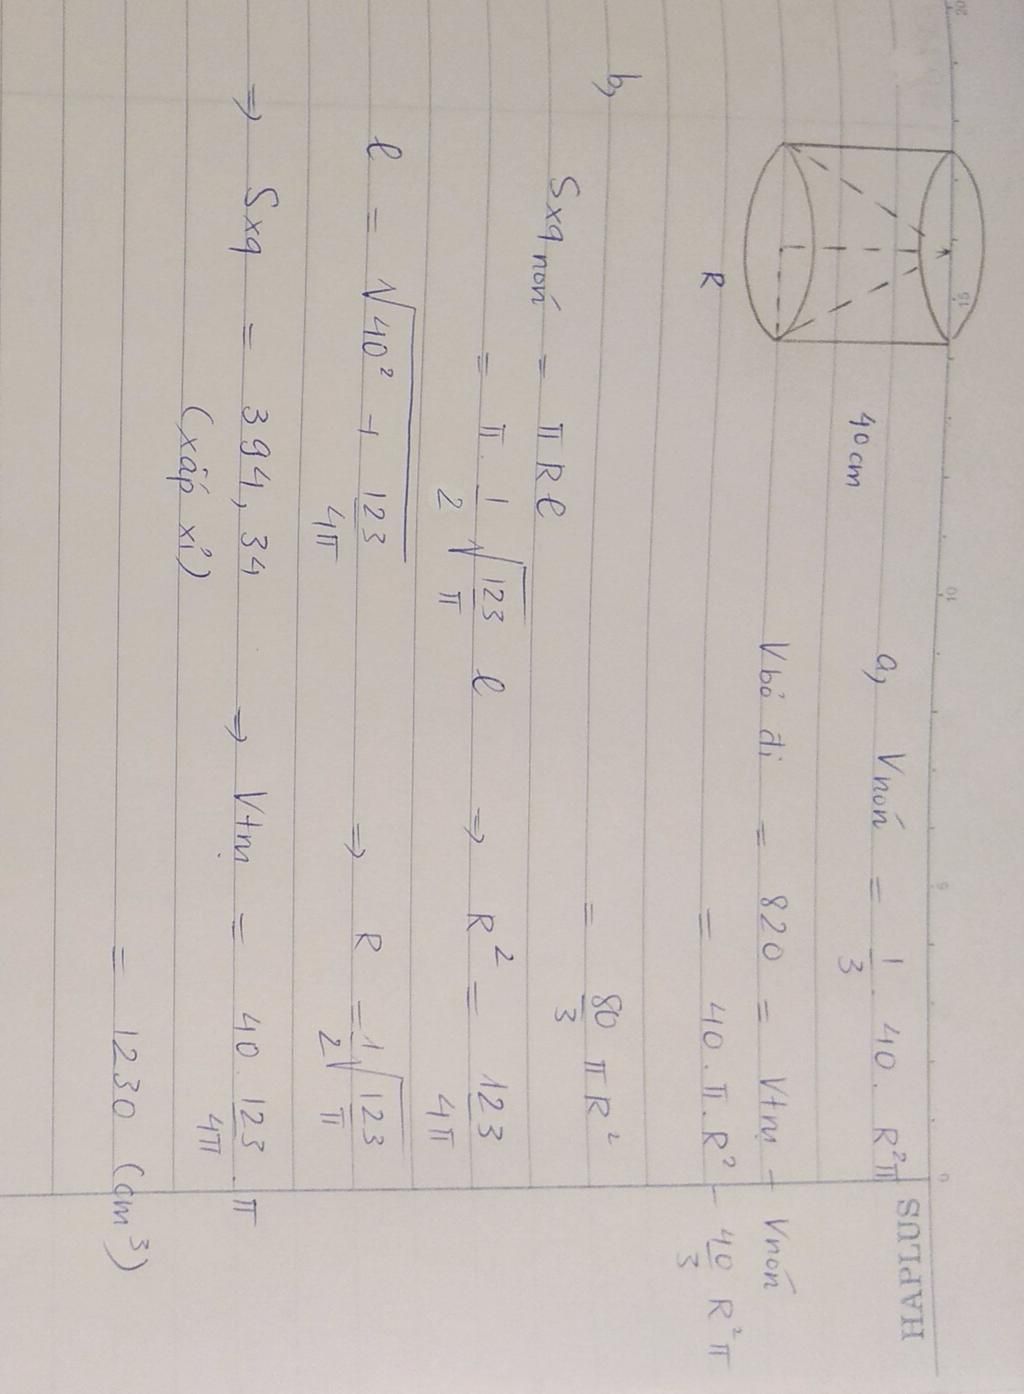 HAPLUS
20
15
10
5
0
40 cm
R
a, Vnón = 1/3 . 40 . R²π
Vbỏ đi = 820 = Vtrụ - Vnón
= 40 . π . R² - 40/3 R²π
= 80/3 π R²
⇒ R² = 123/4π
⇒ R = 1/2 √(123/π)
⇒ Vtrụ = 40 . 123/4π . π
= 1230 (cm³)
b,
Sxq nón = π R ℓ
= π . 1/2 √(123/π) ℓ
ℓ = √(40² + 123/4π)
⇒ Sxq = 394,34
(xấp xỉ)